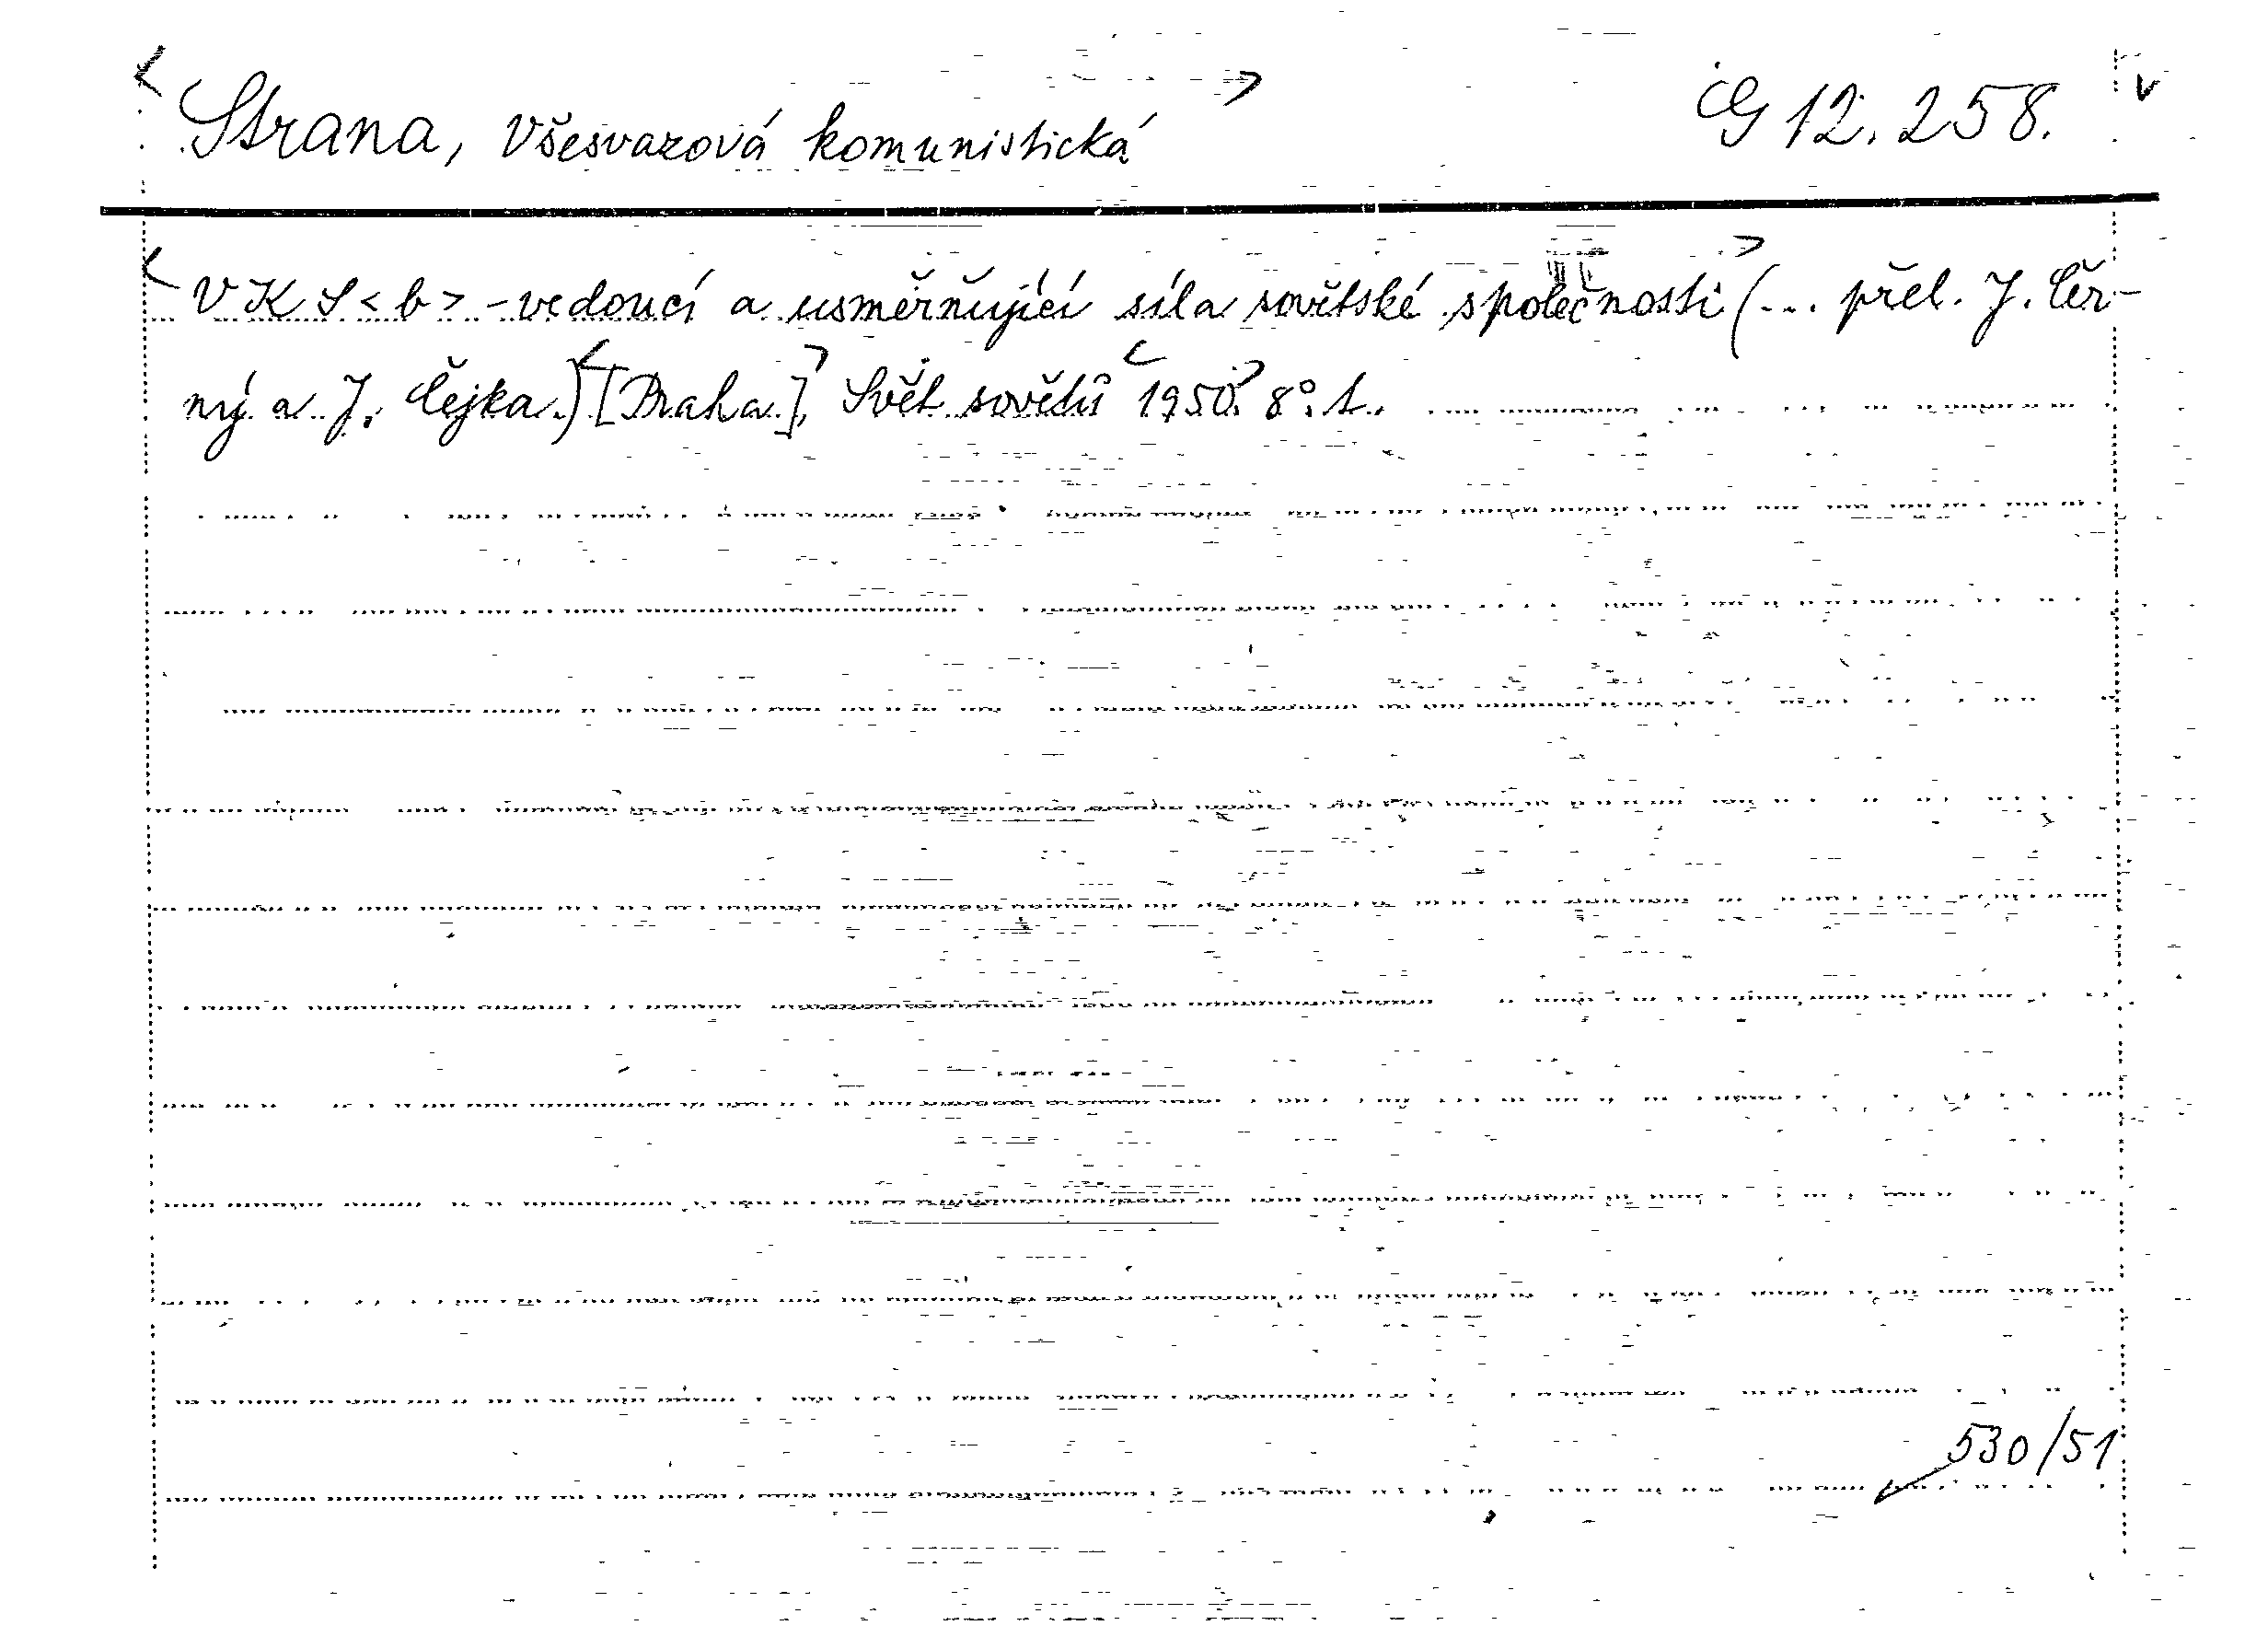 Strana, Všesvazová komunistická G 12.258.
VKS<b> - vedoucí a usměrňující síla sovětské společnosti (... přel. J. Čer-
ný a J. Čejka.) [Praha], Svět sovětů 1950. 8°. 1.
530/51